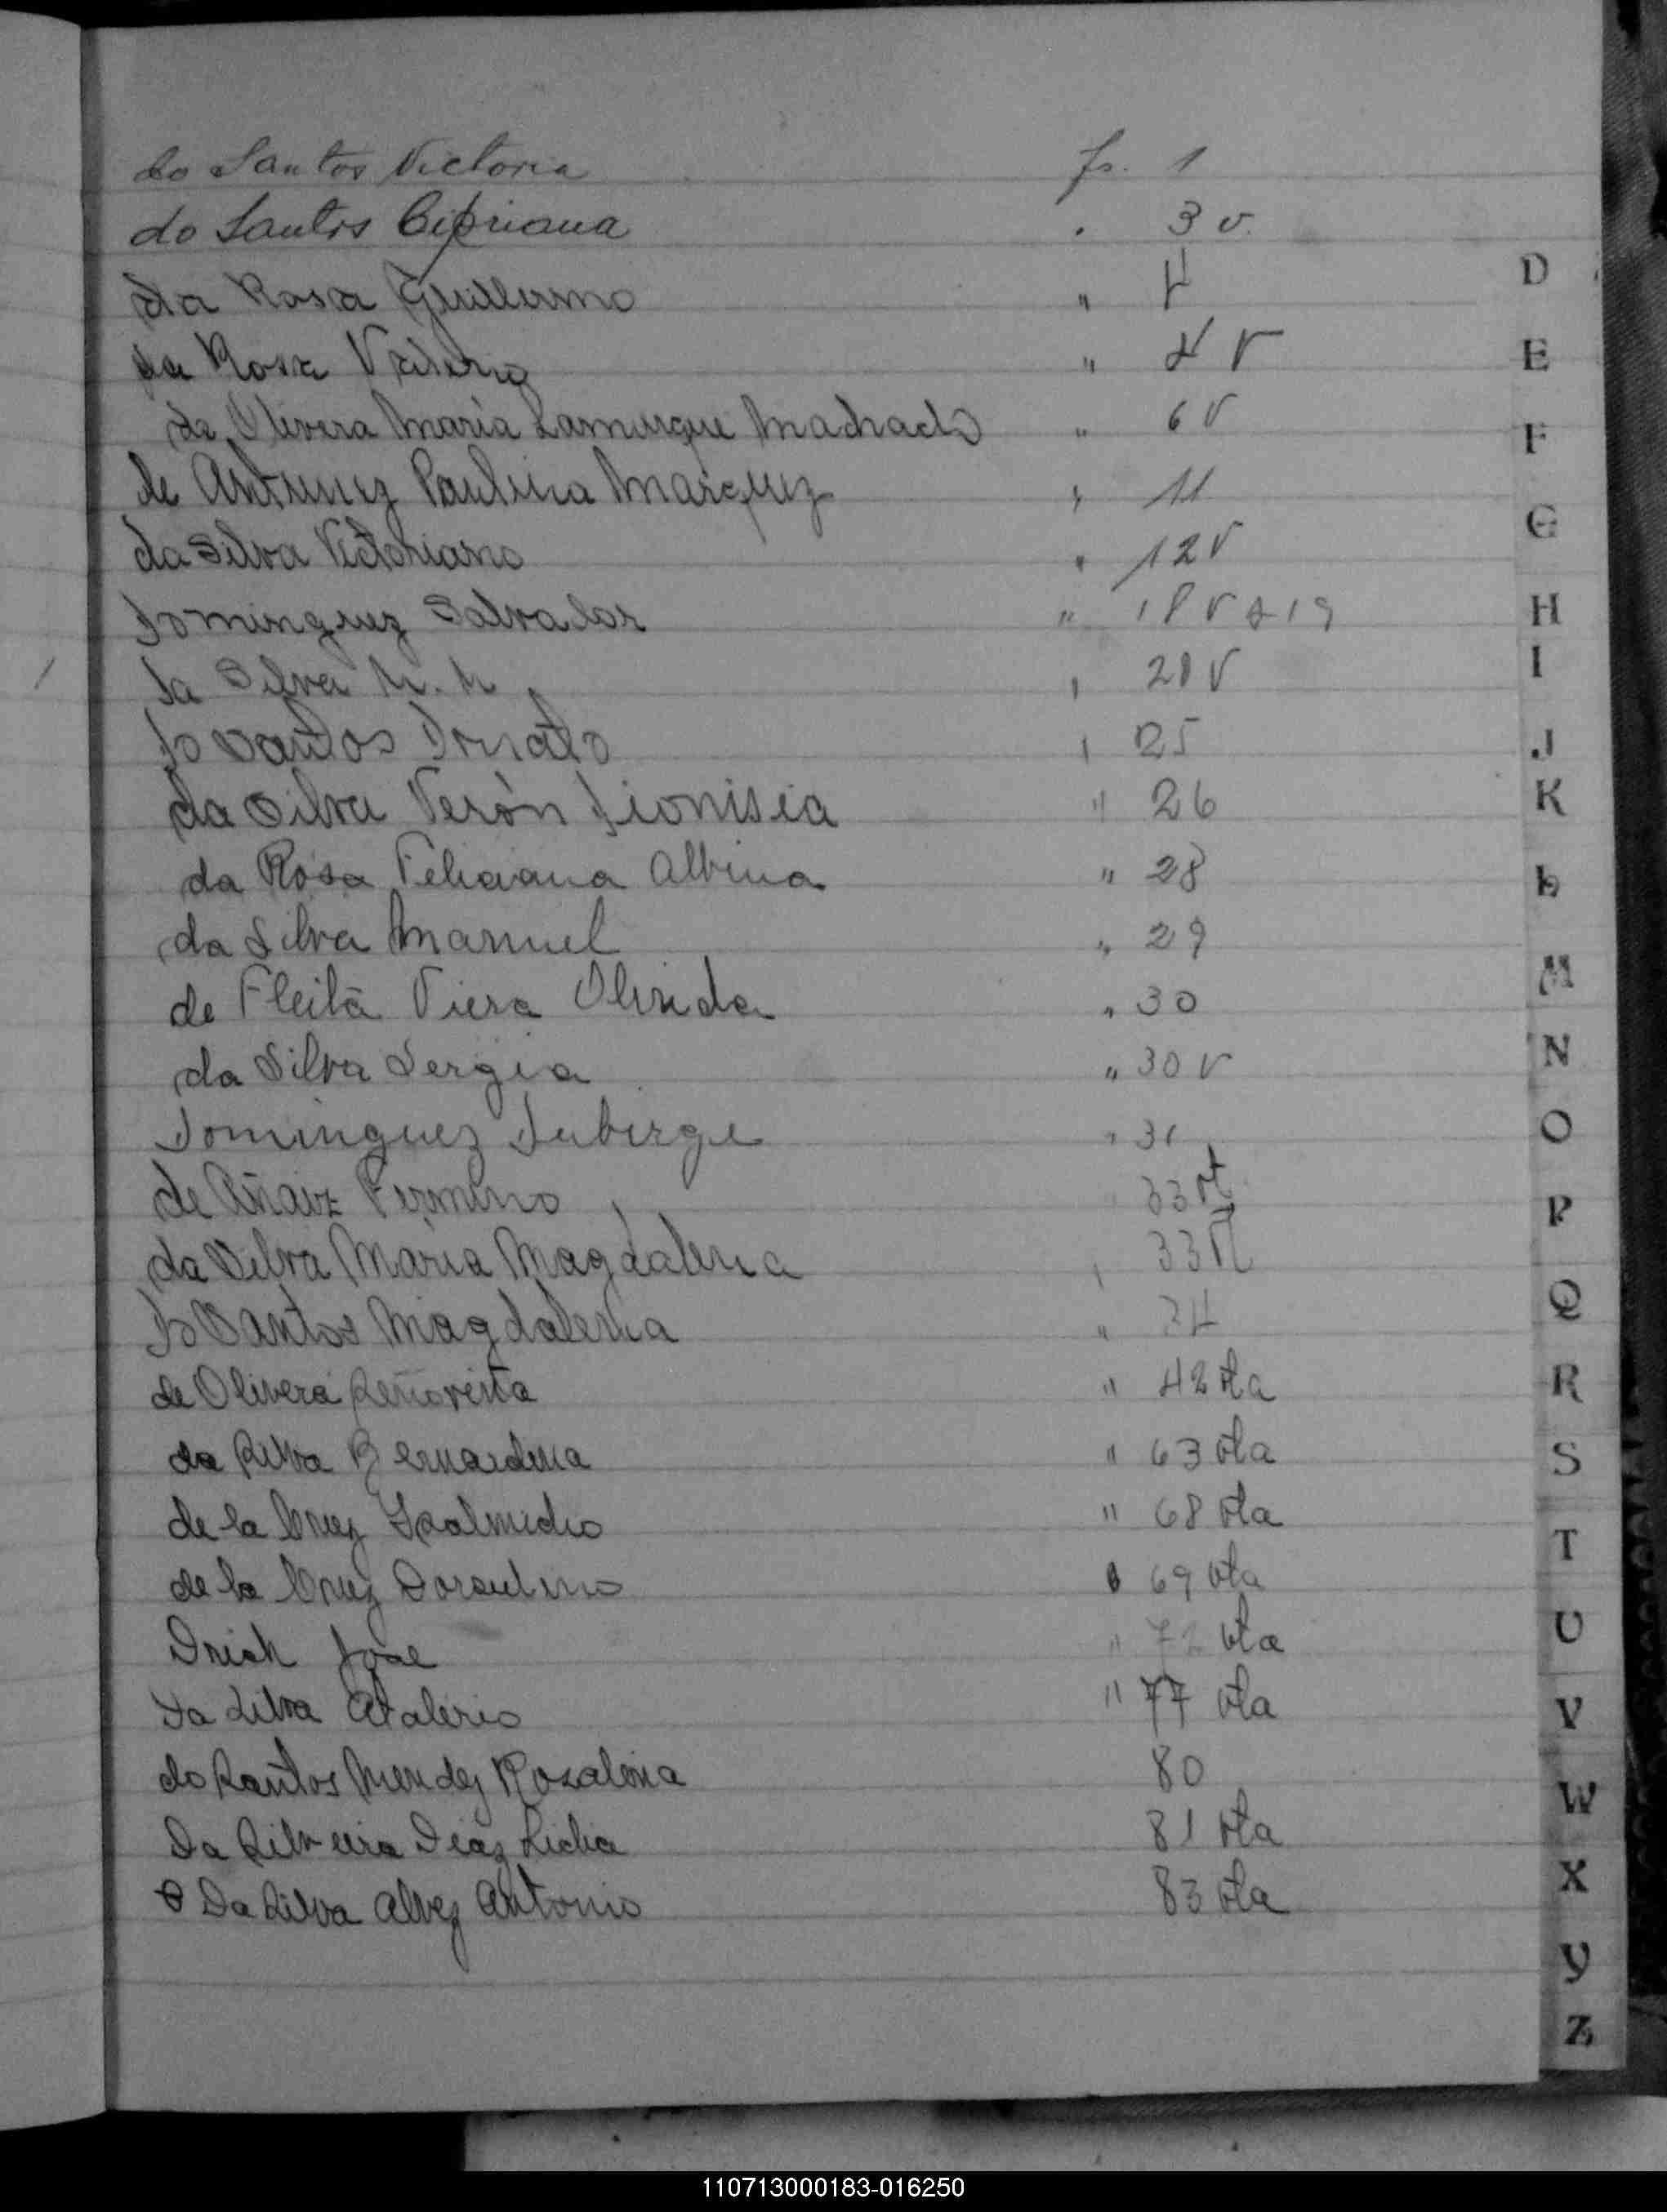 do Santos Victoria fs. 1
do Santos Cipriana . 3 v.
da Rosa Guillermo " 4
da Rosa Valerio " 4 V
da Olivera María Lamurque Machado " 6 V
de Antunez Paulina Marquez " 11
da Silva Victoriano " 12 V
Dominguez Salvador " 18 V a 19
da Silva N. N. " 20 V
do Santos Donato " 25
da Silva Verón Dionisia " 26
da Rosa Feliciana Albina " 28
da Silva Manuel " 29
de Fleita Viera Olinda " 30
da Silva Sergia " 30 v
Dominguez " 31
de Fermino 33 vt
da Silva María Magdalena " 33 vt
do Santos Magdalena " 34
de Olivera Señorita " 42 vta
da Silva Bernardina " 63 vta
de la Cruz " 68 vta
de la Cruz " 69 vta
José " 72 vta
Da Silva Atalicio " 77 vta
do Santos Mendez Rozalina 80
Da Silveira Diaz Lidia 81 vta
Da Silva Alvez Antonio 83 vta
D
E
F
G
H
I
J
K
L
M
N
O
P
Q
R
S
T
U
V
W
X
Y
Z
110713000183-016250